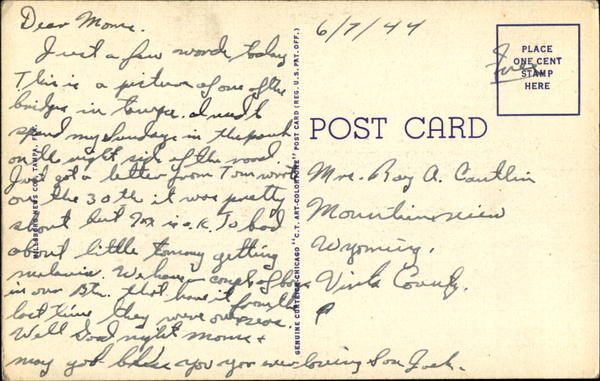 Dear Mom.
Just a few words today
This is a picture of one of the
bridges in Tampa. I used to
spend my Sundays in the park
on the right side of the road.
Just got a letter from Tom wrote
on the 30th it was pretty
short but Tom is o.K. To bad
about little tommy getting
malaria. We have a couple of boys
in our Btn. that have it from the
last time they were overseas.
Well Good night Mome +
may god bless you your ever loving Son Jack.
HILLSBORO NEWS CO., TAMPA, FLA.
GENUINE CURTEICH-CHICAGO "C.T. ART-COLORTONE" POST CARD (REG. U.S. PAT. OFF.)
6/7/44
Free
PLACE
ONE CENT
STAMP
HERE
POST CARD
Mrs. Ray A. Cantlin
Mountainview
Wyoming.
Vinta County.